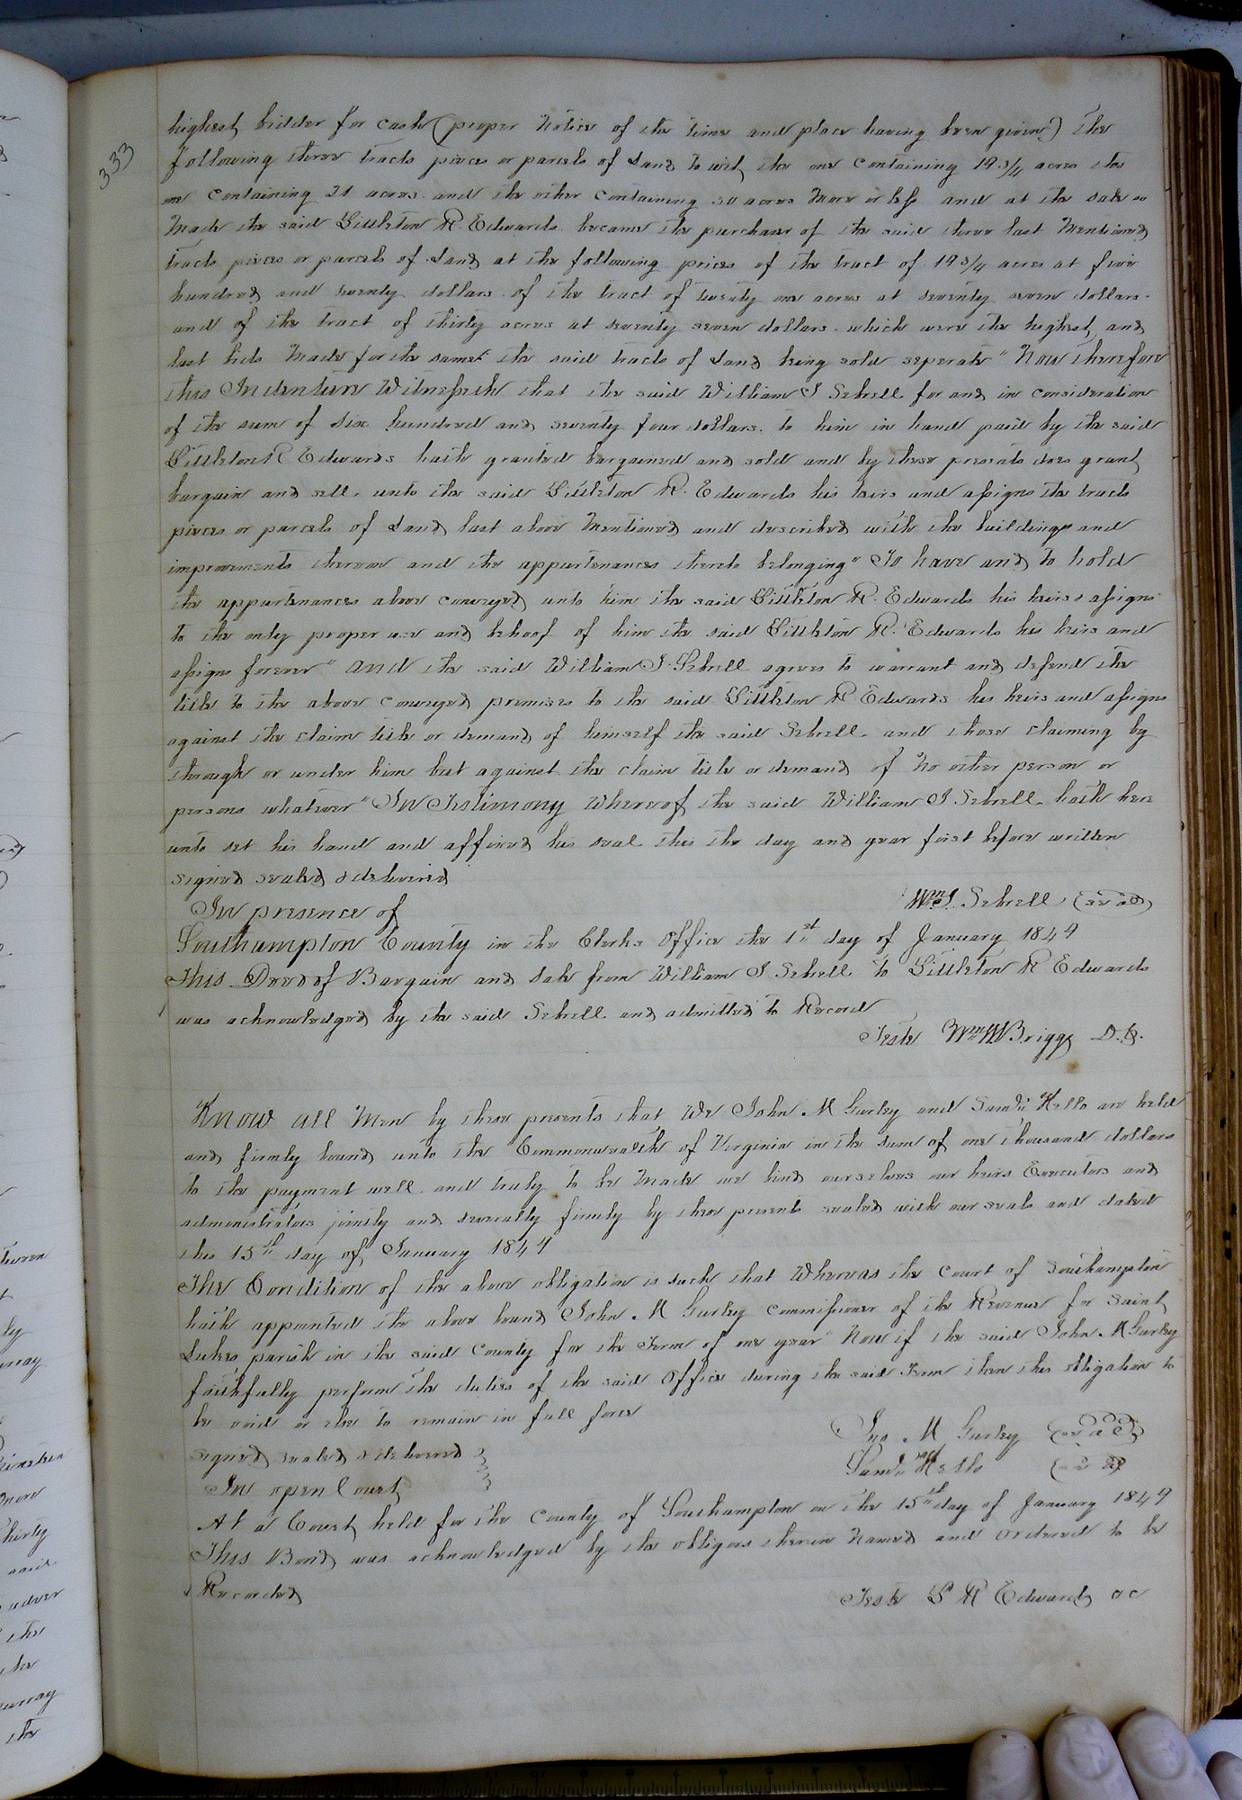 333
highest bidder for cash (proper notice of the time and place having been given) the
following three tracts pieces or parcels of Land to wit, the one containing 19 3/4 acres the
one containing 21 acres and the other containing 30 acres more or less and at the sale so
made the said Littleton R. Edwards became the purchaser of the said three last mentioned
tracts pieces or parcels of Land at the following prices of the tract of 19 3/4 acres at five
hundred and twenty dollars of the tract of twenty one acres at seventy seven dollars
and of the tract of thirty acres at seventy seven dollars which were the highest and
last bids made for the same the said tracts of Land being sold seperate" Now therefore
this Indenture Witnesseth that the said William J Sebrell for and in consideration
of the sum of Six hundred and seventy four dollars to him in hand paid by the said
Littleton R Edwards hath granted bargained and sold and by these presents does grant
bargain and sell unto the said Littleton R. Edwards his heirs and assigns the tracts
pieces or parcels of Land last above mentioned and described with the buildings and
improvements thereon and the appurtenances thereto belonging" To have and to hold
the appurtenances above conveyed unto him the said Littleton R. Edwards his heirs & assigns
to the only proper use and behoof of him the said Littleton R. Edwards his heirs and
assigns forever" And the said William J Sebrell agrees to warrant and defend the
title to the above conveyed premises to the said Littleton R Edwards his heirs and assigns
against the claim title or demand of himself the said Sebrell and those claiming by
through or under him but against the claim title or demand of no other person or
persons whatever" In Testimony Whereof the said William J Sebrell hath here
unto set his hand and affixed his seal this the day and year first before written
signed sealed & delivered
In presence of
Wm J. Sebrell (seal)
Southampton County in the Clerks Office the 1st day of January 1849
This Deed of Bargain and Sale from William J Sebrell to Littleton R Edwards
was acknowledged by the said Sebrell and admitted to Record
Teste Wm W Briggs D.C.
Know all Men by these presents that We John M Gurley and Saml Kello are held
and firmly bound unto the Commonwealth of Virginia in the sum of one thousand dollars
to the payment well and truly to be made we bind ourselves our heirs Executors and
administrators jointly and severally firmly by these presents sealed with our seals and dated
this 15th day of January 1849
The Condition of the above obligation is such that Whereas the Court of Southampton
hath appointed the above bound John M Gurley commissioner of the Revenue for Saint
Lukes parish in the said County for the Term of one year" Now if the said John M Gurley
faithfully perform the duties of the said Office during the said Term then this obligation to
be void or else to remain in full force
signed sealed & delivered
In open Court
Jno M Gurley (seal)
Saml Kello (seal)
At a Court held for the County of Southampton on the 15th day of January 1849
This Bond was acknowledged by the obligors therein named and ordered to be
Recorded
Teste L R Edwards CC